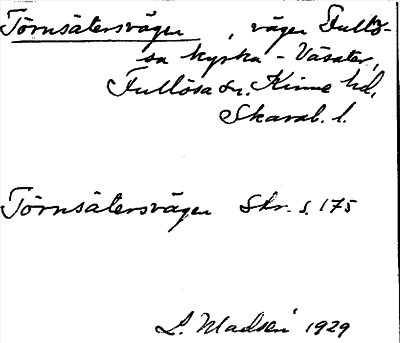 Törnsätersvägen, vägen Fullö-
sa kyrka - Väsäter,
Fullösa sn. Kinne hd,
Skarab. l.
Törnsätersvägen Skr. s. 175
L. Madsén 1929